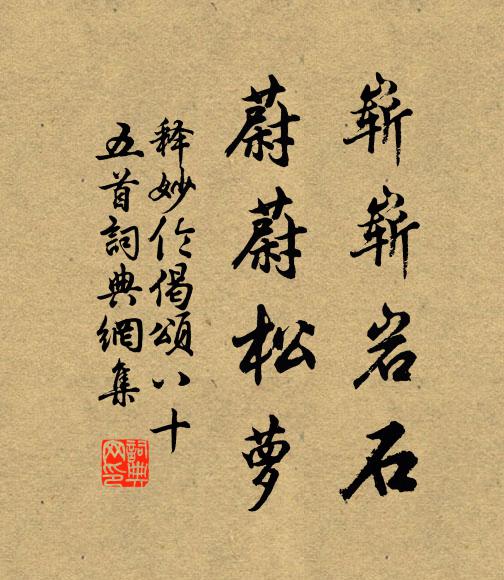 嶄嶄岩石
蔚蔚松萝
释妙伦偈頌八十
五首詞典網集
詞典网印